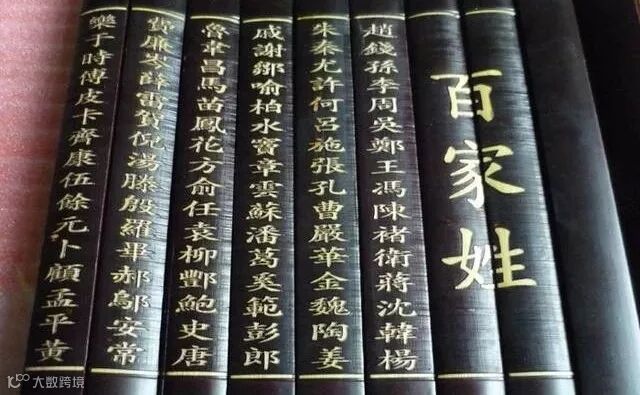 百家姓
趙錢孫李周吳鄭王馮陳褚衛蔣沈韓楊
朱秦尤許何呂施張孔曹嚴華金魏陶姜
戚謝鄒喻柏水竇章雲蘇潘葛奚範彭郎
魯韋昌馬苗鳳花方俞任袁柳酆鮑史唐
費廉岑薛雷賀倪湯滕殷羅畢郝鄔安常
樂于時傅皮卡齊康伍餘元卜顧孟平黃
大数跨境